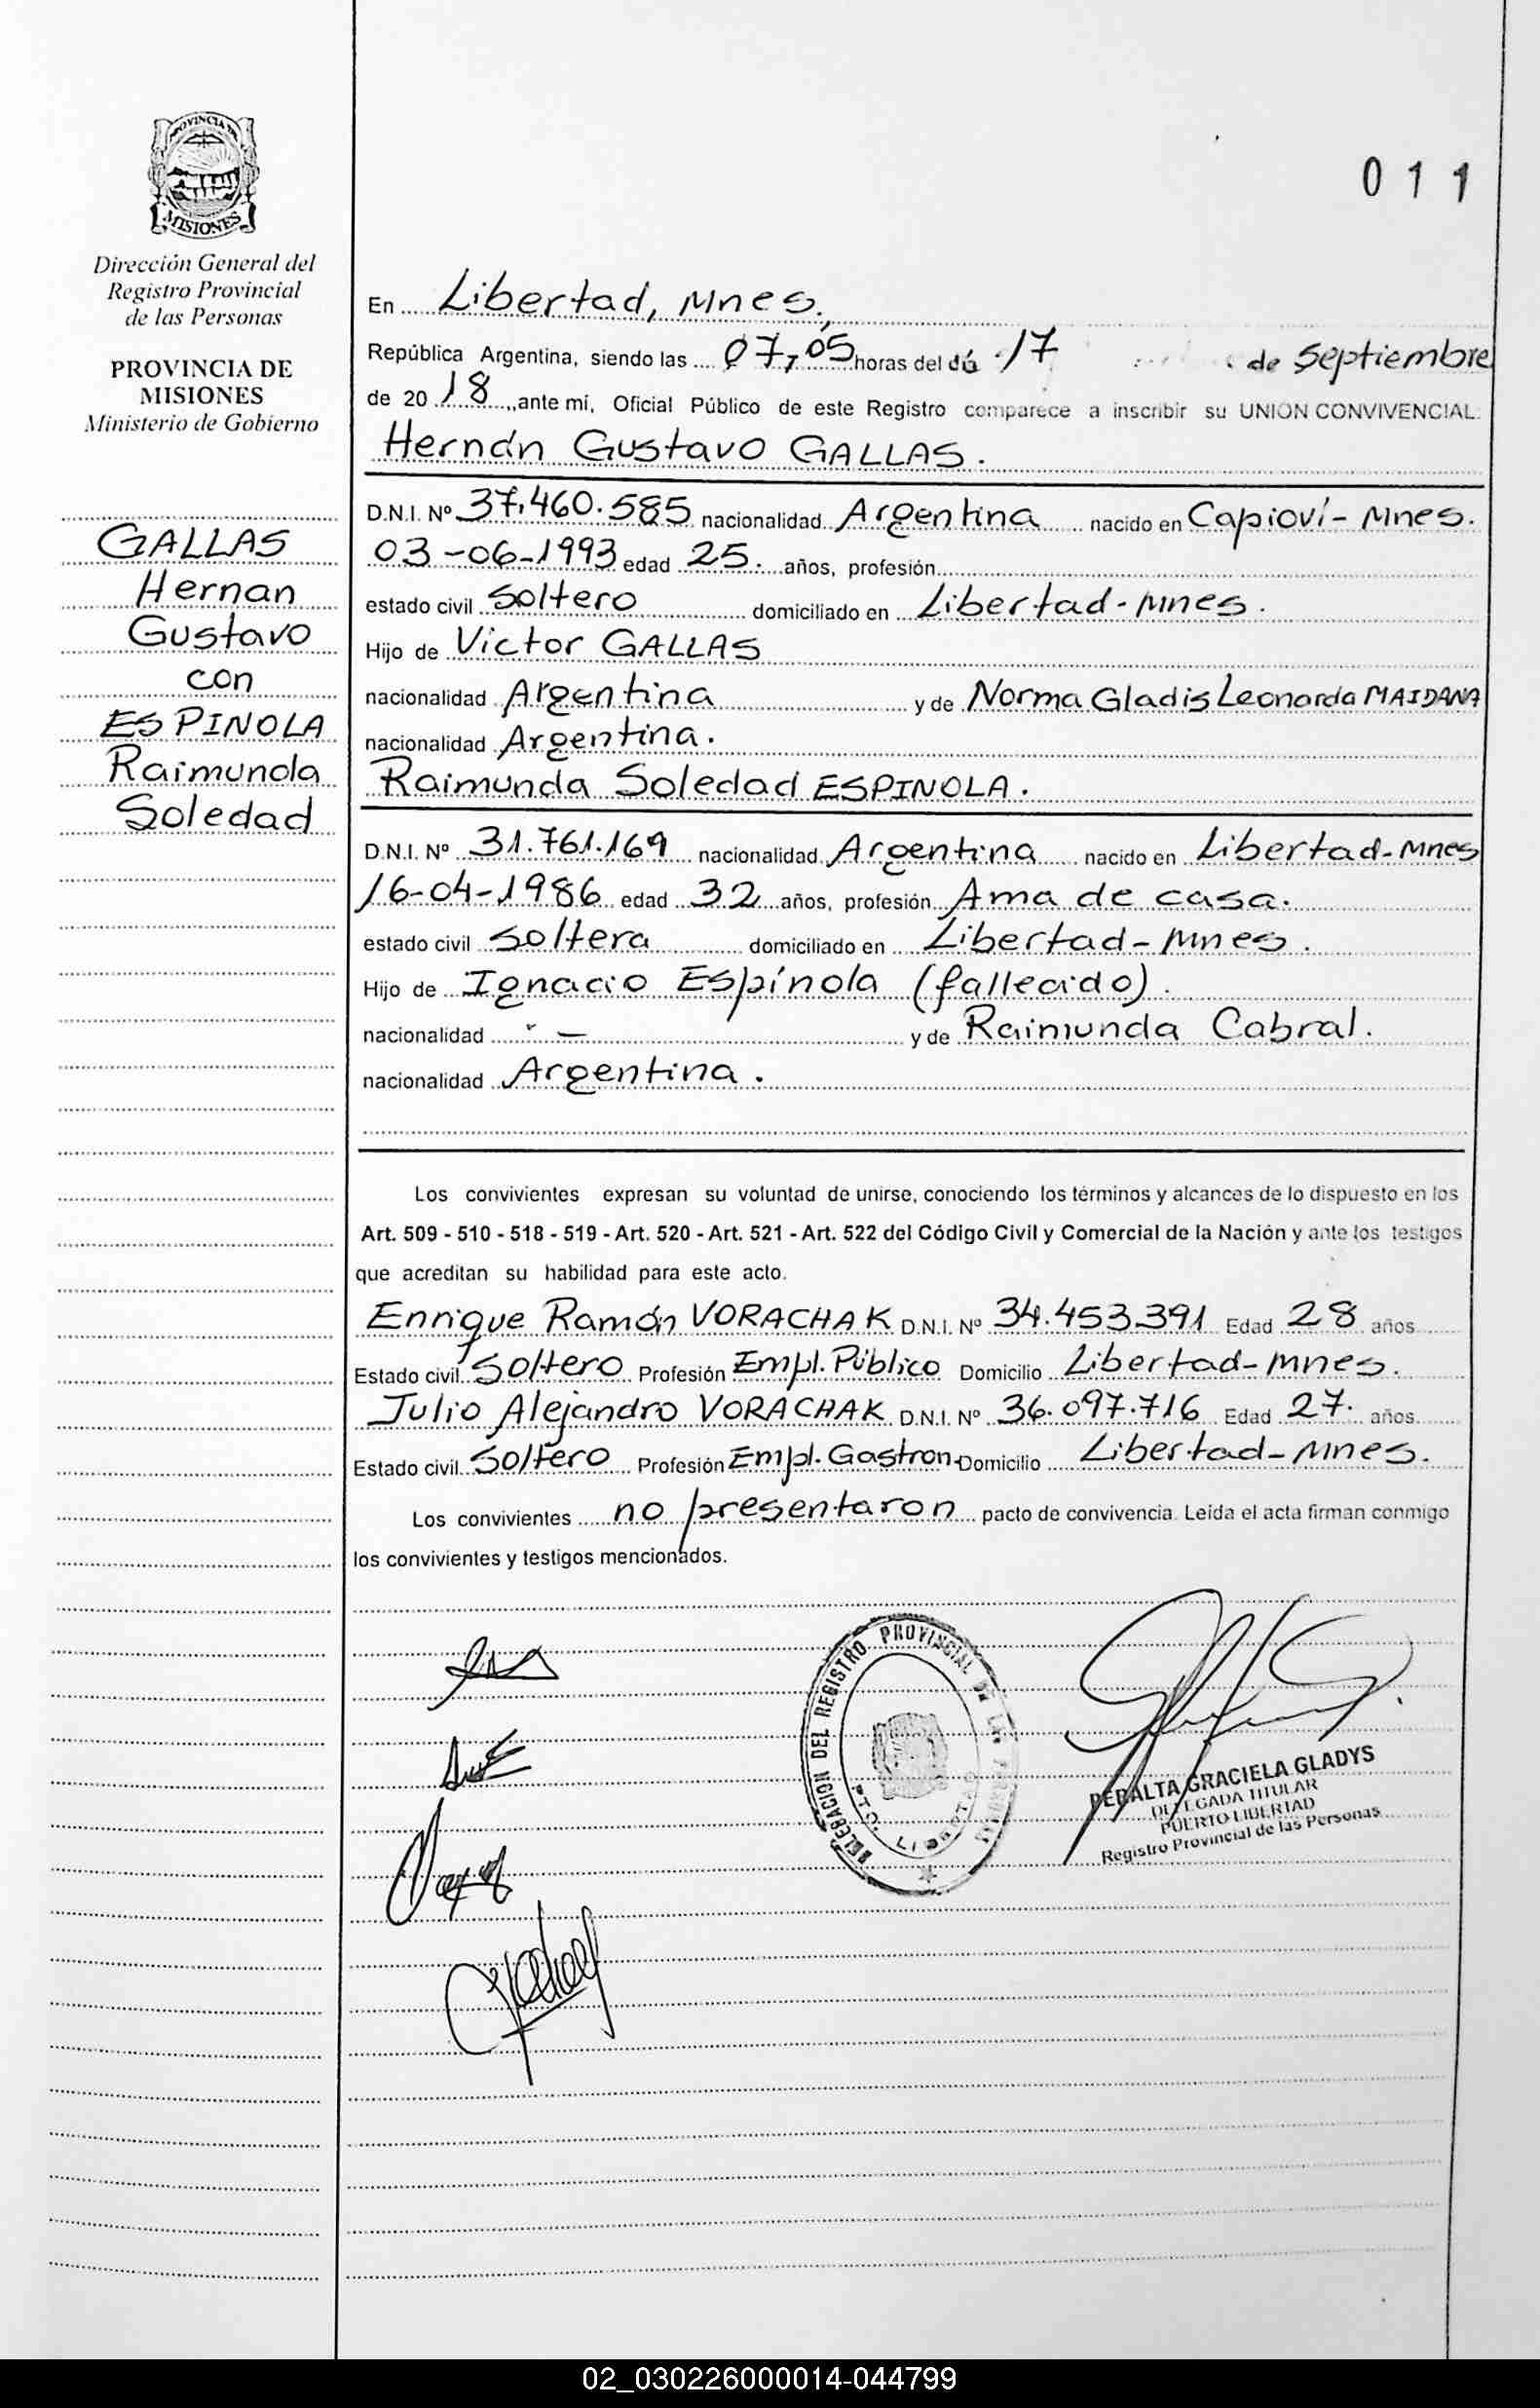 011
PROVINCIA DE
MISIONES
Dirección General del
Registro Provincial
de las Personas
PROVINCIA DE
MISIONES
Ministerio de Gobierno
GALLAS
Hernan
Gustavo
con
ESPINOLA
Raimunda
Soledad
En Libertad, Mnes.,
República Argentina, siendo las 07,05 horas del día 17 de Septiembre
de 2018, ante mí, Oficial Público de este Registro comparece a inscribir su UNION CONVIVENCIAL:
Hernán Gustavo GALLAS.
D.N.I. Nº 37.460.585 nacionalidad Argentina nacido en Capioví-Mnes.
03-06-1993 edad 25. años, profesión
estado civil Soltero domiciliado en Libertad-Mnes.
Hijo de Victor GALLAS
nacionalidad Argentina y de Norma Gladis Leonarda MAIDANA
nacionalidad Argentina.
Raimunda Soledad ESPINOLA.
D.N.I. Nº 31.761.169 nacionalidad Argentina nacido en Libertad-Mnes
16-04-1986 edad 32 años, profesión Ama de casa.
estado civil Soltera domiciliado en Libertad-Mnes.
Hijo de Ignacio Espínola (fallecido).
nacionalidad - y de Raimunda Cabral.
nacionalidad Argentina.
Los convivientes expresan su voluntad de unirse, conociendo los términos y alcances de lo dispuesto en los
Art. 509 - 510 - 518 - 519 - Art. 520 - Art. 521 - Art. 522 del Código Civil y Comercial de la Nación y ante los testigos
que acreditan su habilidad para este acto.
Enrique Ramón VORACHAK D.N.I. Nº 34.453.391 Edad 28 años
Estado civil Soltero Profesión Empl. Público Domicilio Libertad-Mnes.
Julio Alejandro VORACHAK D.N.I. Nº 36.097.716 Edad 27. años
Estado civil Soltero Profesión Empl. Gastron. Domicilio Libertad-Mnes.
Los convivientes no presentaron pacto de convivencia. Leída el acta firman conmigo
los convivientes y testigos mencionados.
DELEGACION DEL REGISTRO PROVINCIAL DE LAS PERSONAS
PTO. LIBERTAD
PERALTA GRACIELA GLADYS
DELEGADA TITULAR
PUERTO LIBERTAD
Registro Provincial de las Personas
02_030226000014-044799